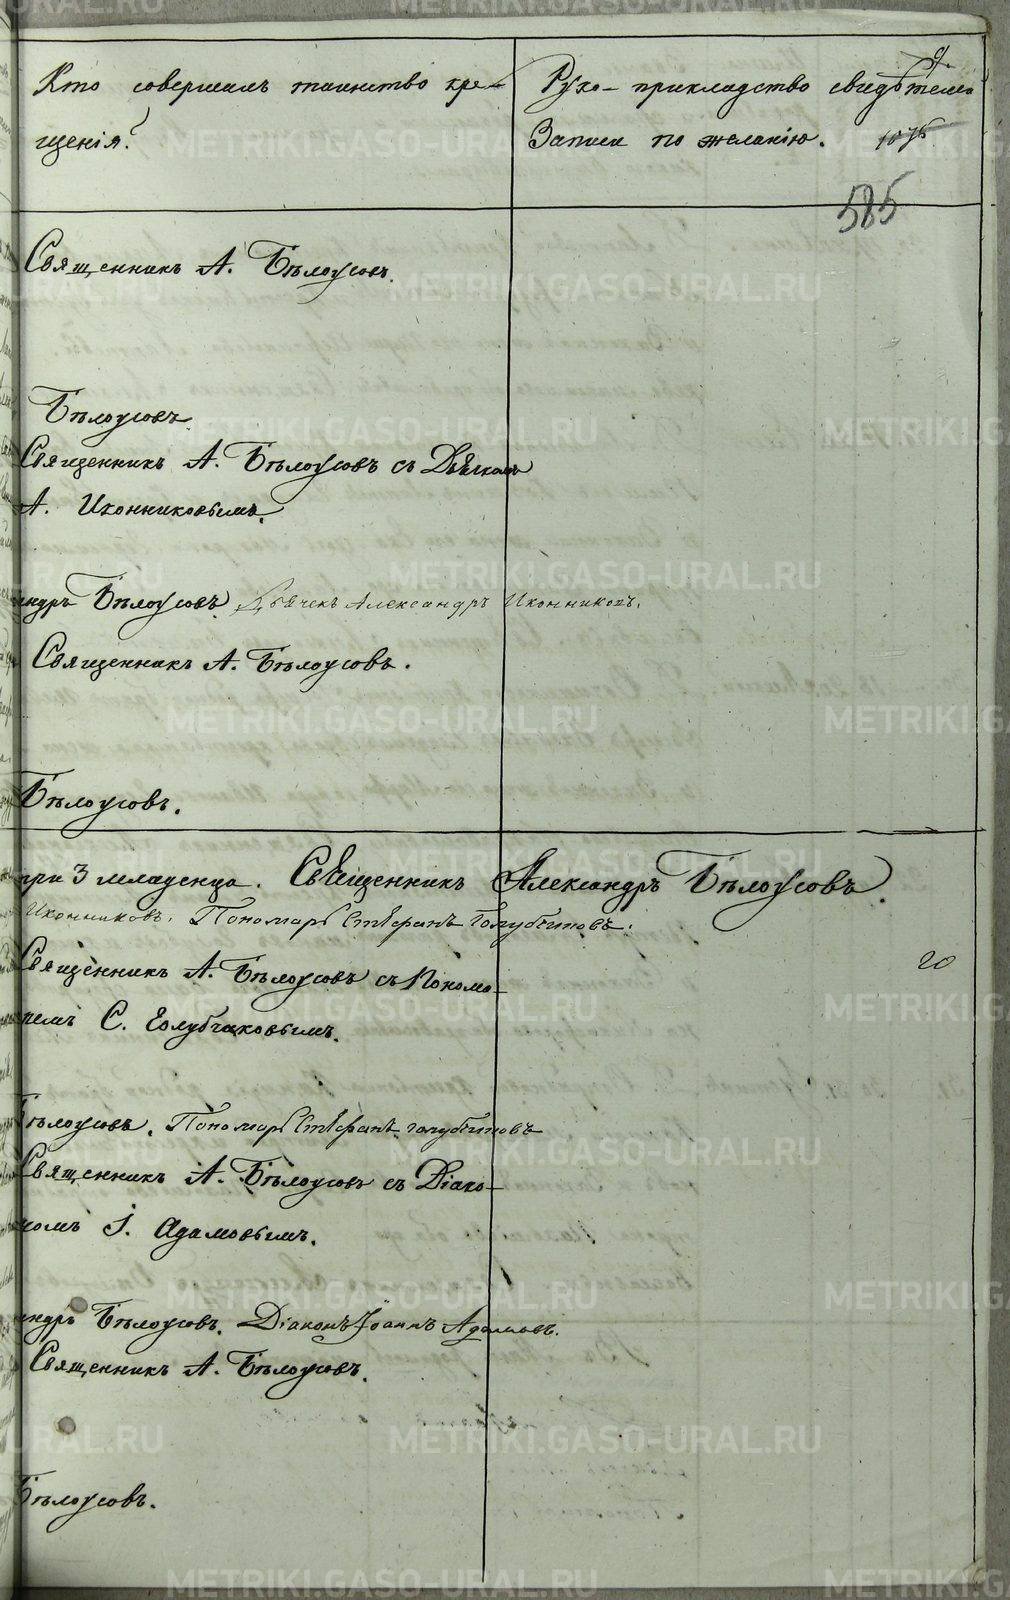 9.
Кто совершалъ таинство кре-
щенія?
Руко-прикладство свидѣтелей
Записи по желанію.
585
Священникъ А. Бѣлоусовъ.
Бѣлоусовъ.
Священникъ А. Бѣлоусовъ съ Дьячкомъ
А. Иконниковымъ.
андръ Бѣлоусовъ. Дьячекъ Александръ Иконниковъ.
Священникъ А. Бѣлоусовъ.
Бѣлоусовъ.
при 3 младенца. Священникъ Александръ Бѣлоусовъ.
Иконниковъ. Пономарь Стефанъ Голубчиковъ.
20
Священникъ А. Бѣлоусовъ съ Поном-
ремъ С. Голубчиковымъ.
Бѣлоусовъ. Пономарь Стефанъ Голубчиковъ
Священникъ А. Бѣлоусовъ съ Діако-
номъ І. Адамовымъ.
андръ Бѣлоусовъ. Діаконъ Іоаннъ Адамовъ.
Священникъ А. Бѣлоусовъ.
Бѣлоусовъ.
METRIKI.GASO-URAL.RU